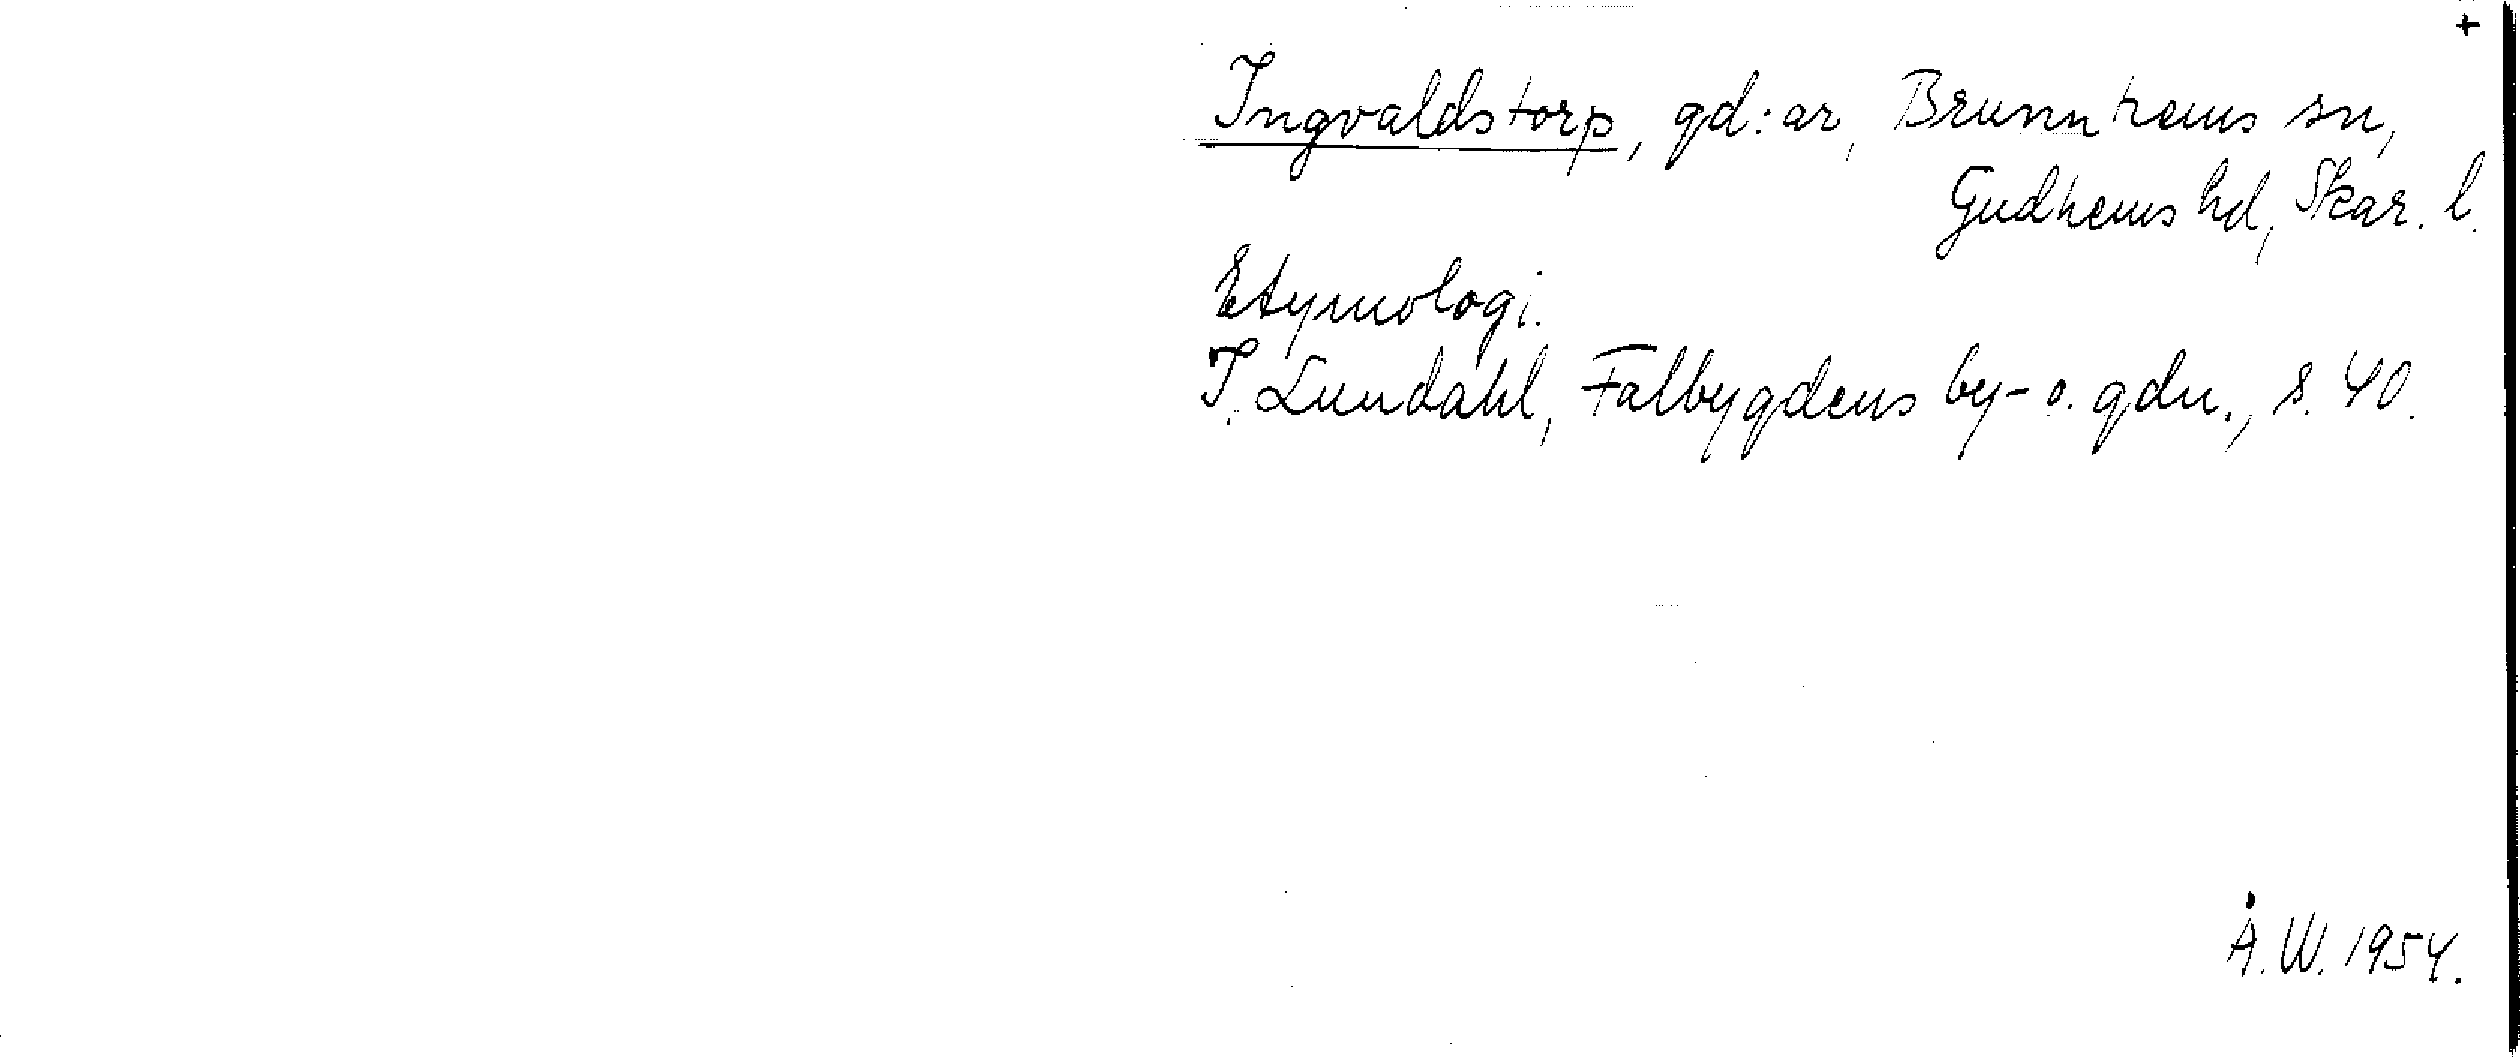 +
Ingvaldstorp, gd:ar, Brunnhems sn,
Gudhems hd, Skar. l.
Etymologi.
I. Lundahl, Falbygdens by- o. gdn., s. 40.
Å.W. 1954.